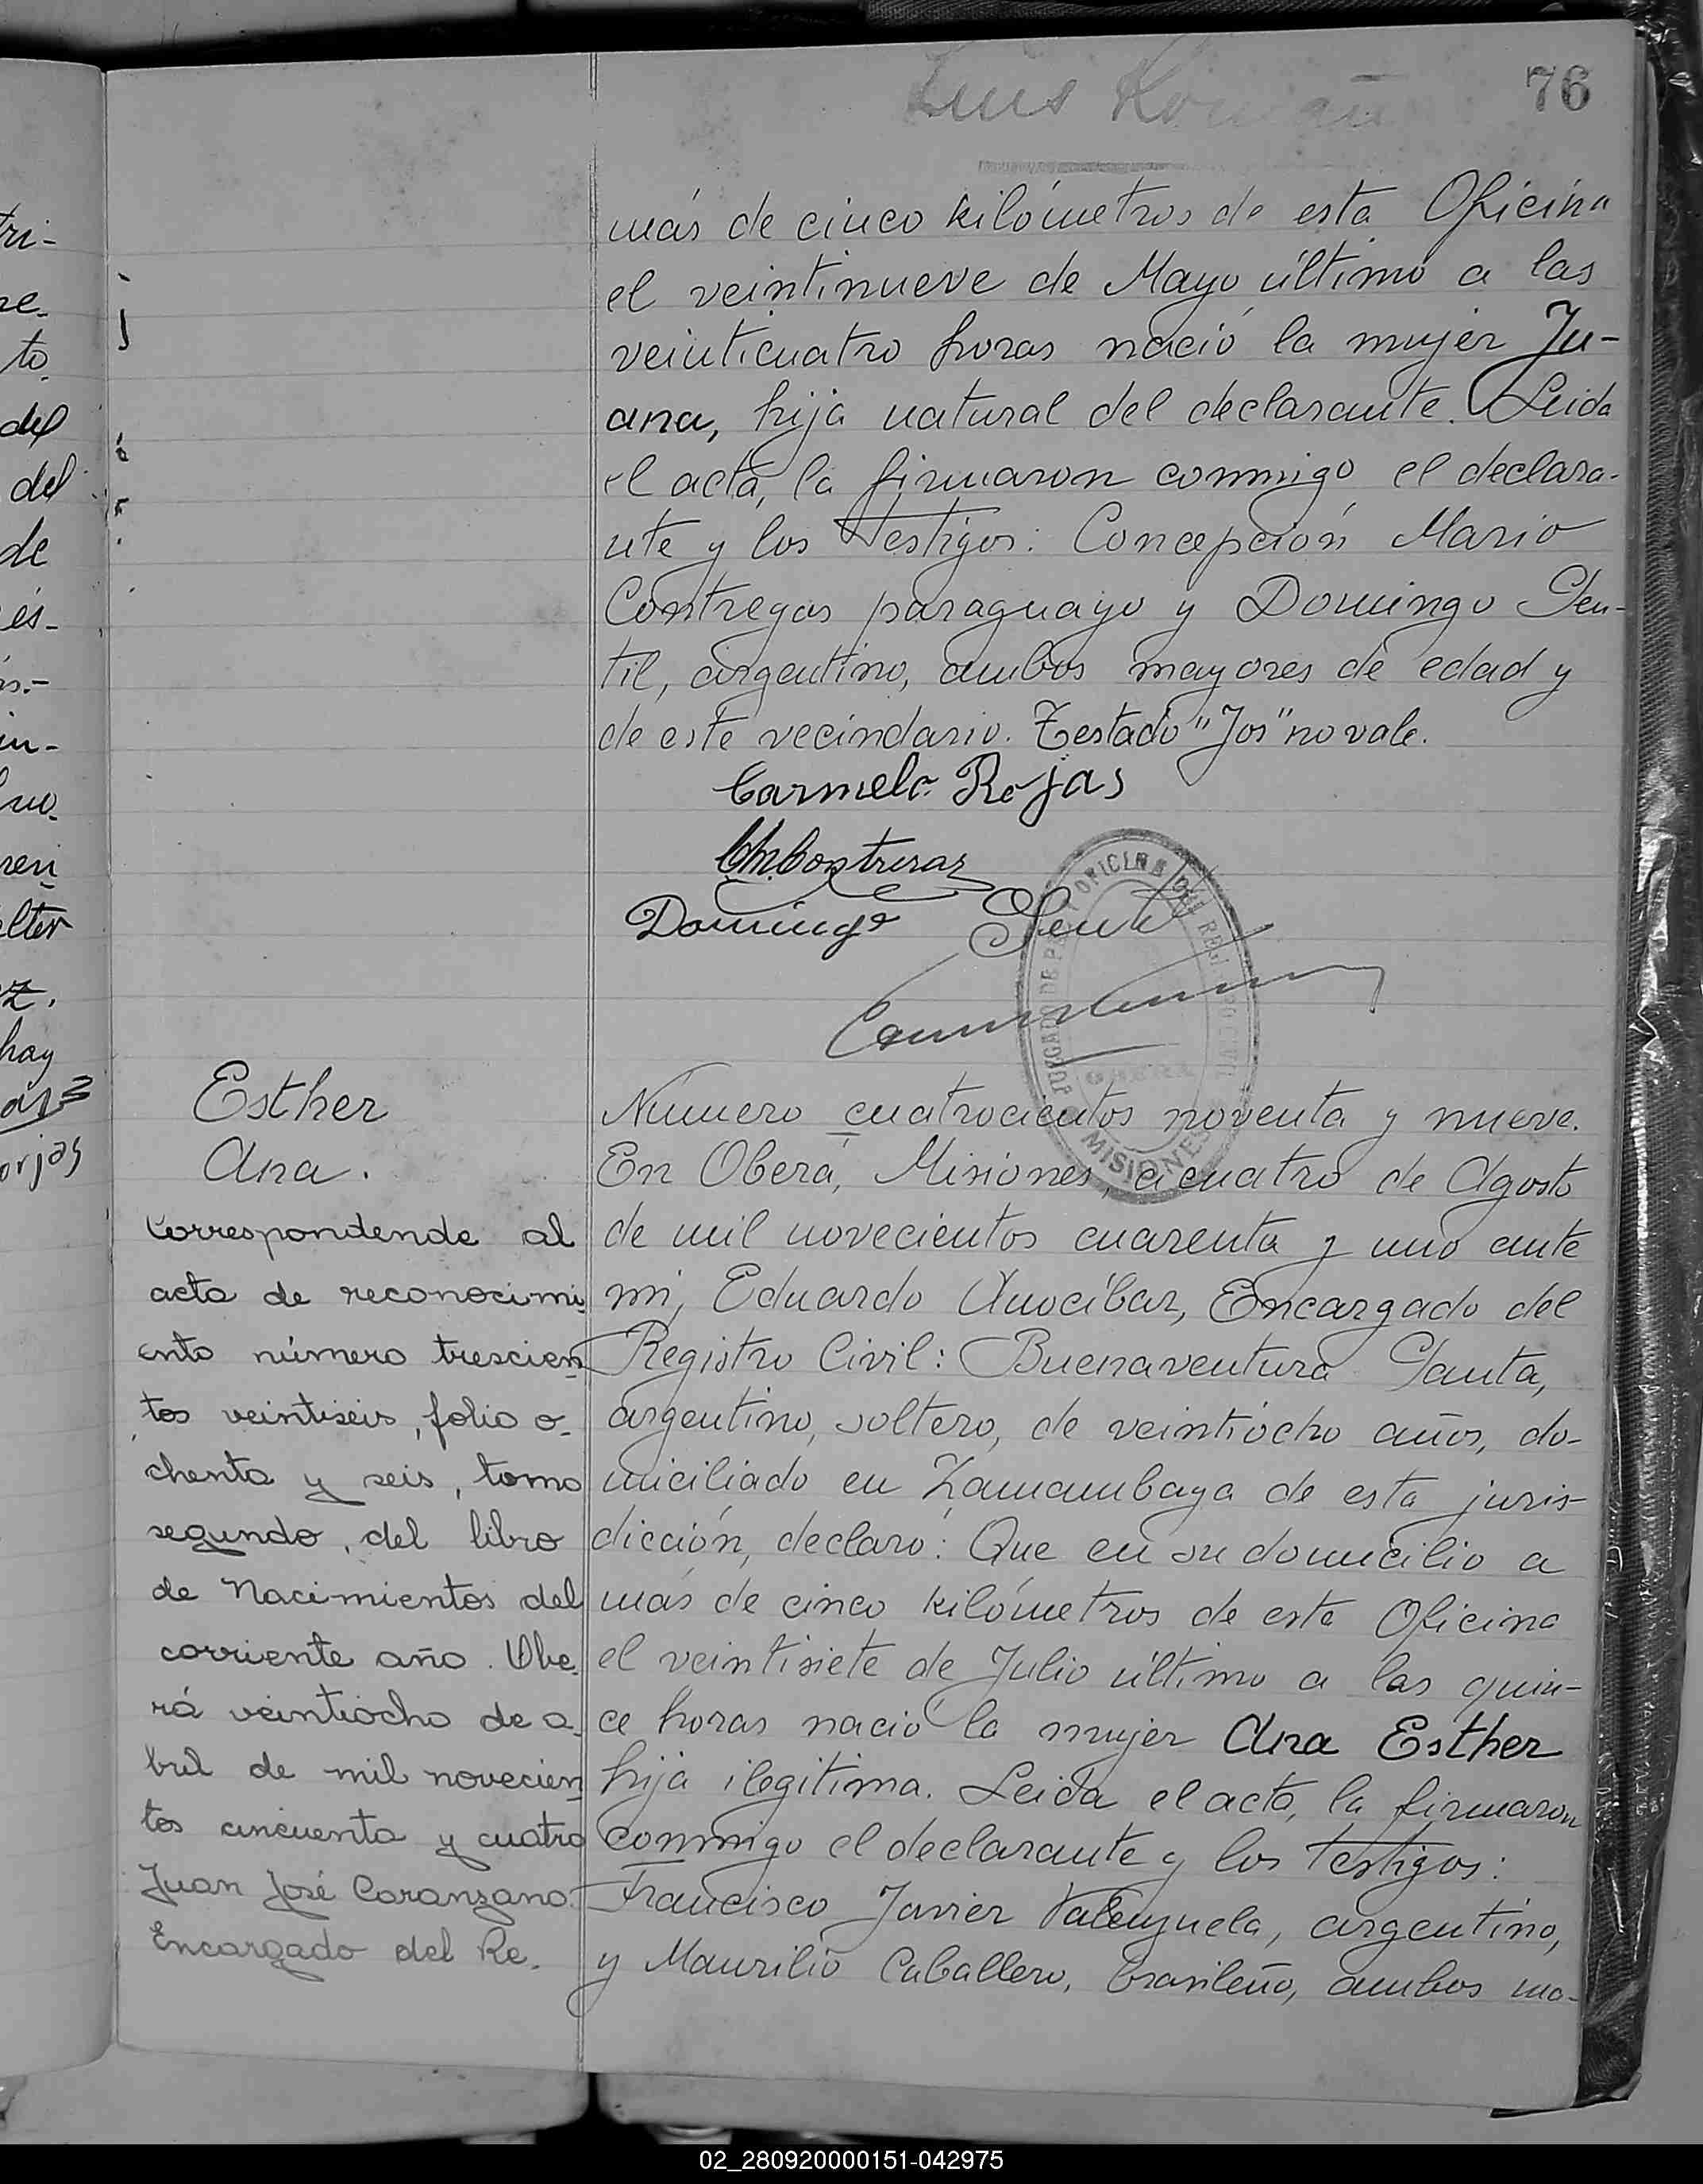 76
Luis
más de cinco kilómetros de esta Oficina
el veintinueve de Mayo último a las
veinticuatro horas nació la mujer Ju-
ana, hija natural del declarante. Leida
el acta, la firmaron conmigo el declara-
nte y los testigos: Concepción Mario
Contregas paraguayo y Domingo Gen-
til, argentino, ambos mayores de edad y
de este vecindario. Testado "Jos" no vale.
Carmelo Rojas
Contreras
Domingo Gentil
OFICINA DEL REGISTRO CIVIL
JUZGADO DE PAZ
OBERA
MISIONES
Esther
Ana.
Correspondende al
acta de reconocimi
ento número trescien
tos veintiseis, folio o-
chenta y seis, tomo
segundo, del libro
de Nacimientos del
corriente año. Obe-
rá veintiocho de a-
bril de mil novecien
tos cincuenta y cuatro
Juan José Caranzano.
Encargado del Re-
Número cuatrocientos noventa y nueve.
En Oberá, Misiones, a cuatro de Agosto
de mil novecientos cuarenta y uno ante
mi, Eduardo Anocíbar, Encargado del
Registro Civil: Buenaventura Ganta,
argentino, soltero, de veintiocho años, do-
miciliado en Zamambaya de esta juris-
dicción, declaró: Que en su domicilio a
más de cinco kilómetros de esta Oficina
el veintisiete de Julio último a las quin-
ce horas nació la mujer Ana Esther
hija ilegitima. Leida el acta, la firmaron
conmigo el declarante y los testigos:
Francisco Javier Valenzuela, argentino,
y Maurilio Caballero, brasileño, ambos ma-
ri-
re-
to
del
del
de
és-
in-
lter
z.
hay
orjas
02_280920000151-042975